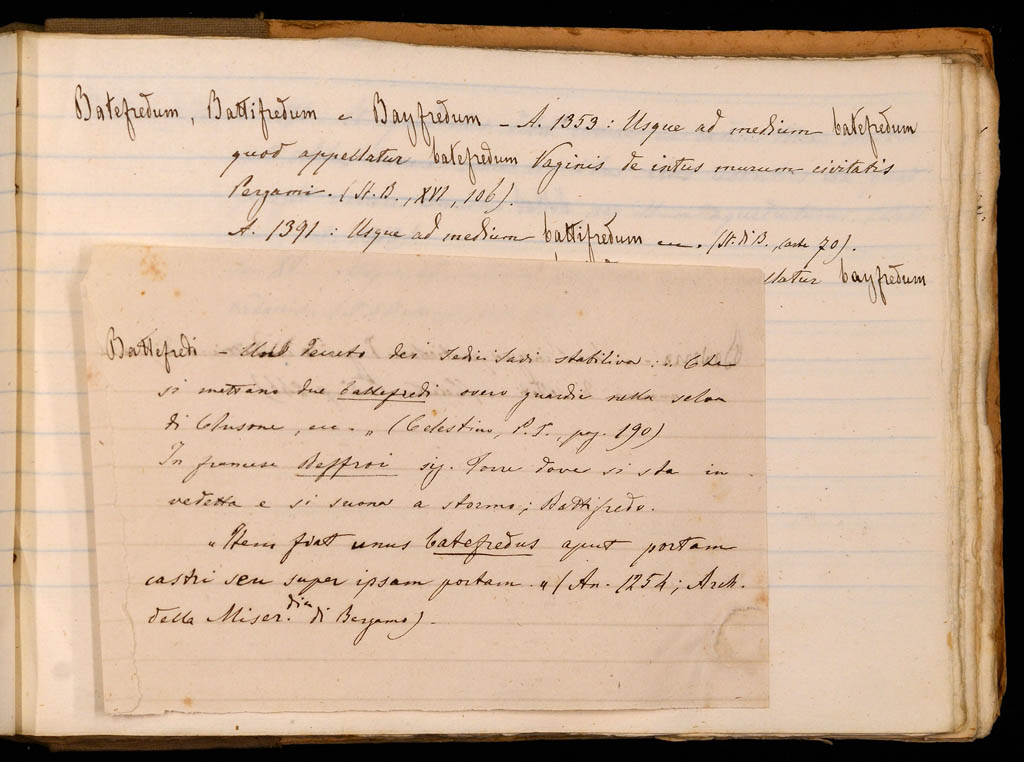 Batefredum, Battifredum e Bayfredum - A. 1353 : Usque ad medium batefredum
quod appellatur batefredum Vaginis de intus murum civitatis
Pergami. (St. B., XVI, 106).
A. 1391 : Usque ad medium battifredum ec. (St. di B., carte 70).
llatur bayfredum
Battefredi - Un Decreto dei Sedici Savi stabiliva : " Che
si mettano due battefredi overo guardie nella selva
di Clusone, ecc. " (Celestino, P. I., pag. 190)
In francese Beffroi sig. Torre dove si sta in
vedetta e si suona a stormo; Battifredo.
" Item fiat unus batefredus aput portam
castri seu super ipsam portam. " (An. 1254; Arch.
della Miser.dia di Bergamo).